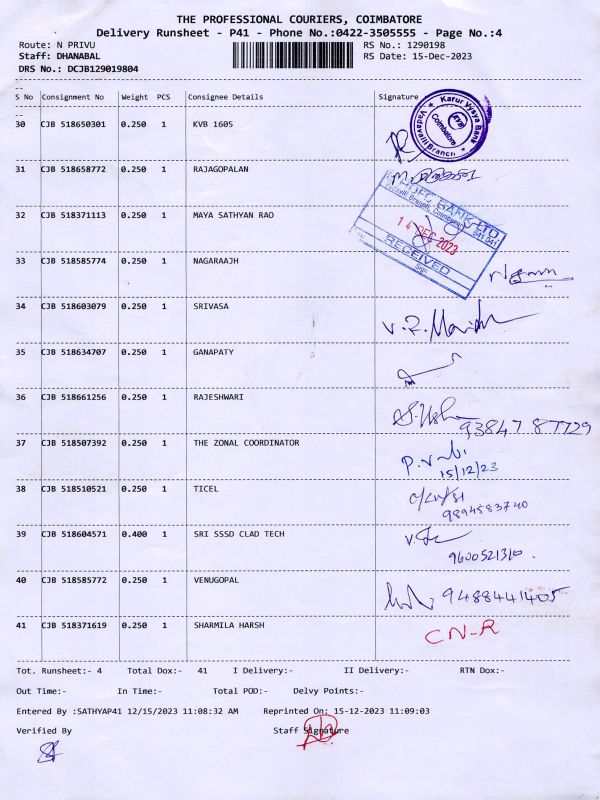 THE PROFESSIONAL COURIERS, COIMBATORE
Delivery Runsheet - P41 - Phone No.:0422-3505555 - Page No.:4
Route: N PRIVU RS No.: 1290198
Staff: DHANABAL RS Date: 15-Dec-2023
DRS No.: DCJB129019804
S No Consignment No Weight PCS Consignee Details Signature
30 CJB 518650301 0.250 1 KVB 1605
Karur Vysya Bank
KVB
Coimbatore
Vadavalli Branch
31 CJB 518658772 0.250 1 RAJAGOPALAN
32 CJB 518371113 0.250 1 MAYA SATHYAN RAO
HDFC BANK LTD
14 DEC 2023
RECEIVED
Sign
33 CJB 518585774 0.250 1 NAGARAAJH
34 CJB 518603079 0.250 1 SRIVASA
35 CJB 518634707 0.250 1 GANAPATY
36 CJB 518661256 0.250 1 RAJESHWARI
93847 87729
37 CJB 518507392 0.250 1 THE ZONAL COORDINATOR
15/12/23
38 CJB 518510521 0.250 1 TICEL
9894583740
39 CJB 518604571 0.400 1 SRI SSSD CLAD TECH
9600521310.
40 CJB 518585772 0.250 1 VENUGOPAL
9488441405
41 CJB 518371619 0.250 1 SHARMILA HARSH
CN-R
Tot. Runsheet:- 4 Total Dox:- 41 I Delivery:- II Delivery:- RTN Dox:-
Out Time:- In Time:- Total POD:- Delvy Points:-
Entered By :SATHYAP41 12/15/2023 11:08:32 AM Reprinted On: 15-12-2023 11:09:03
Verified By Staff Signature